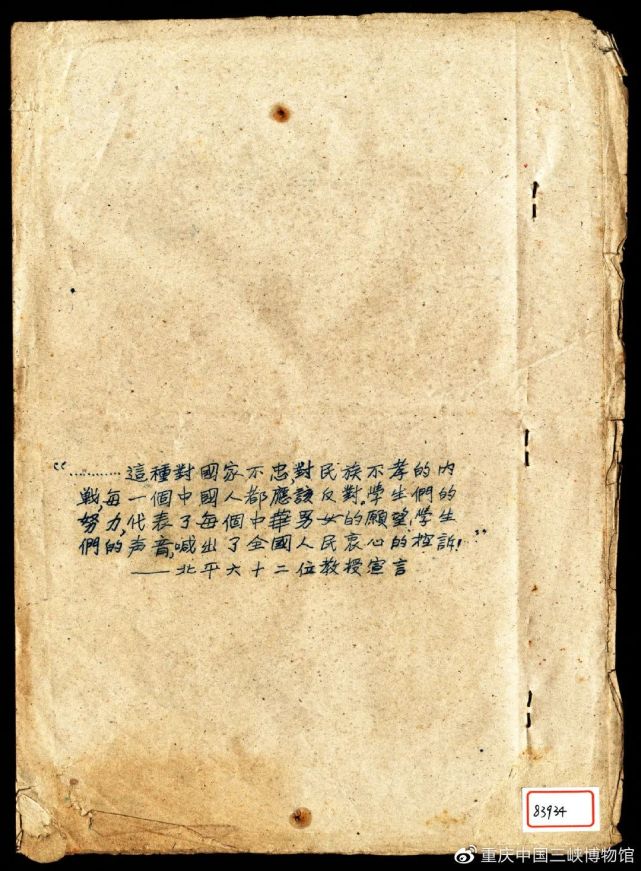 “…………這種對國家不忠,對民族不孝的内
戰,每一個中國人都應該反對,學生們的
努力,代表了每個中華男女的願望,學生
們的声音,喊出了全國人民哀心的控訴!”
——北平六十二位教授宣言
83934
重庆中国三峡博物馆